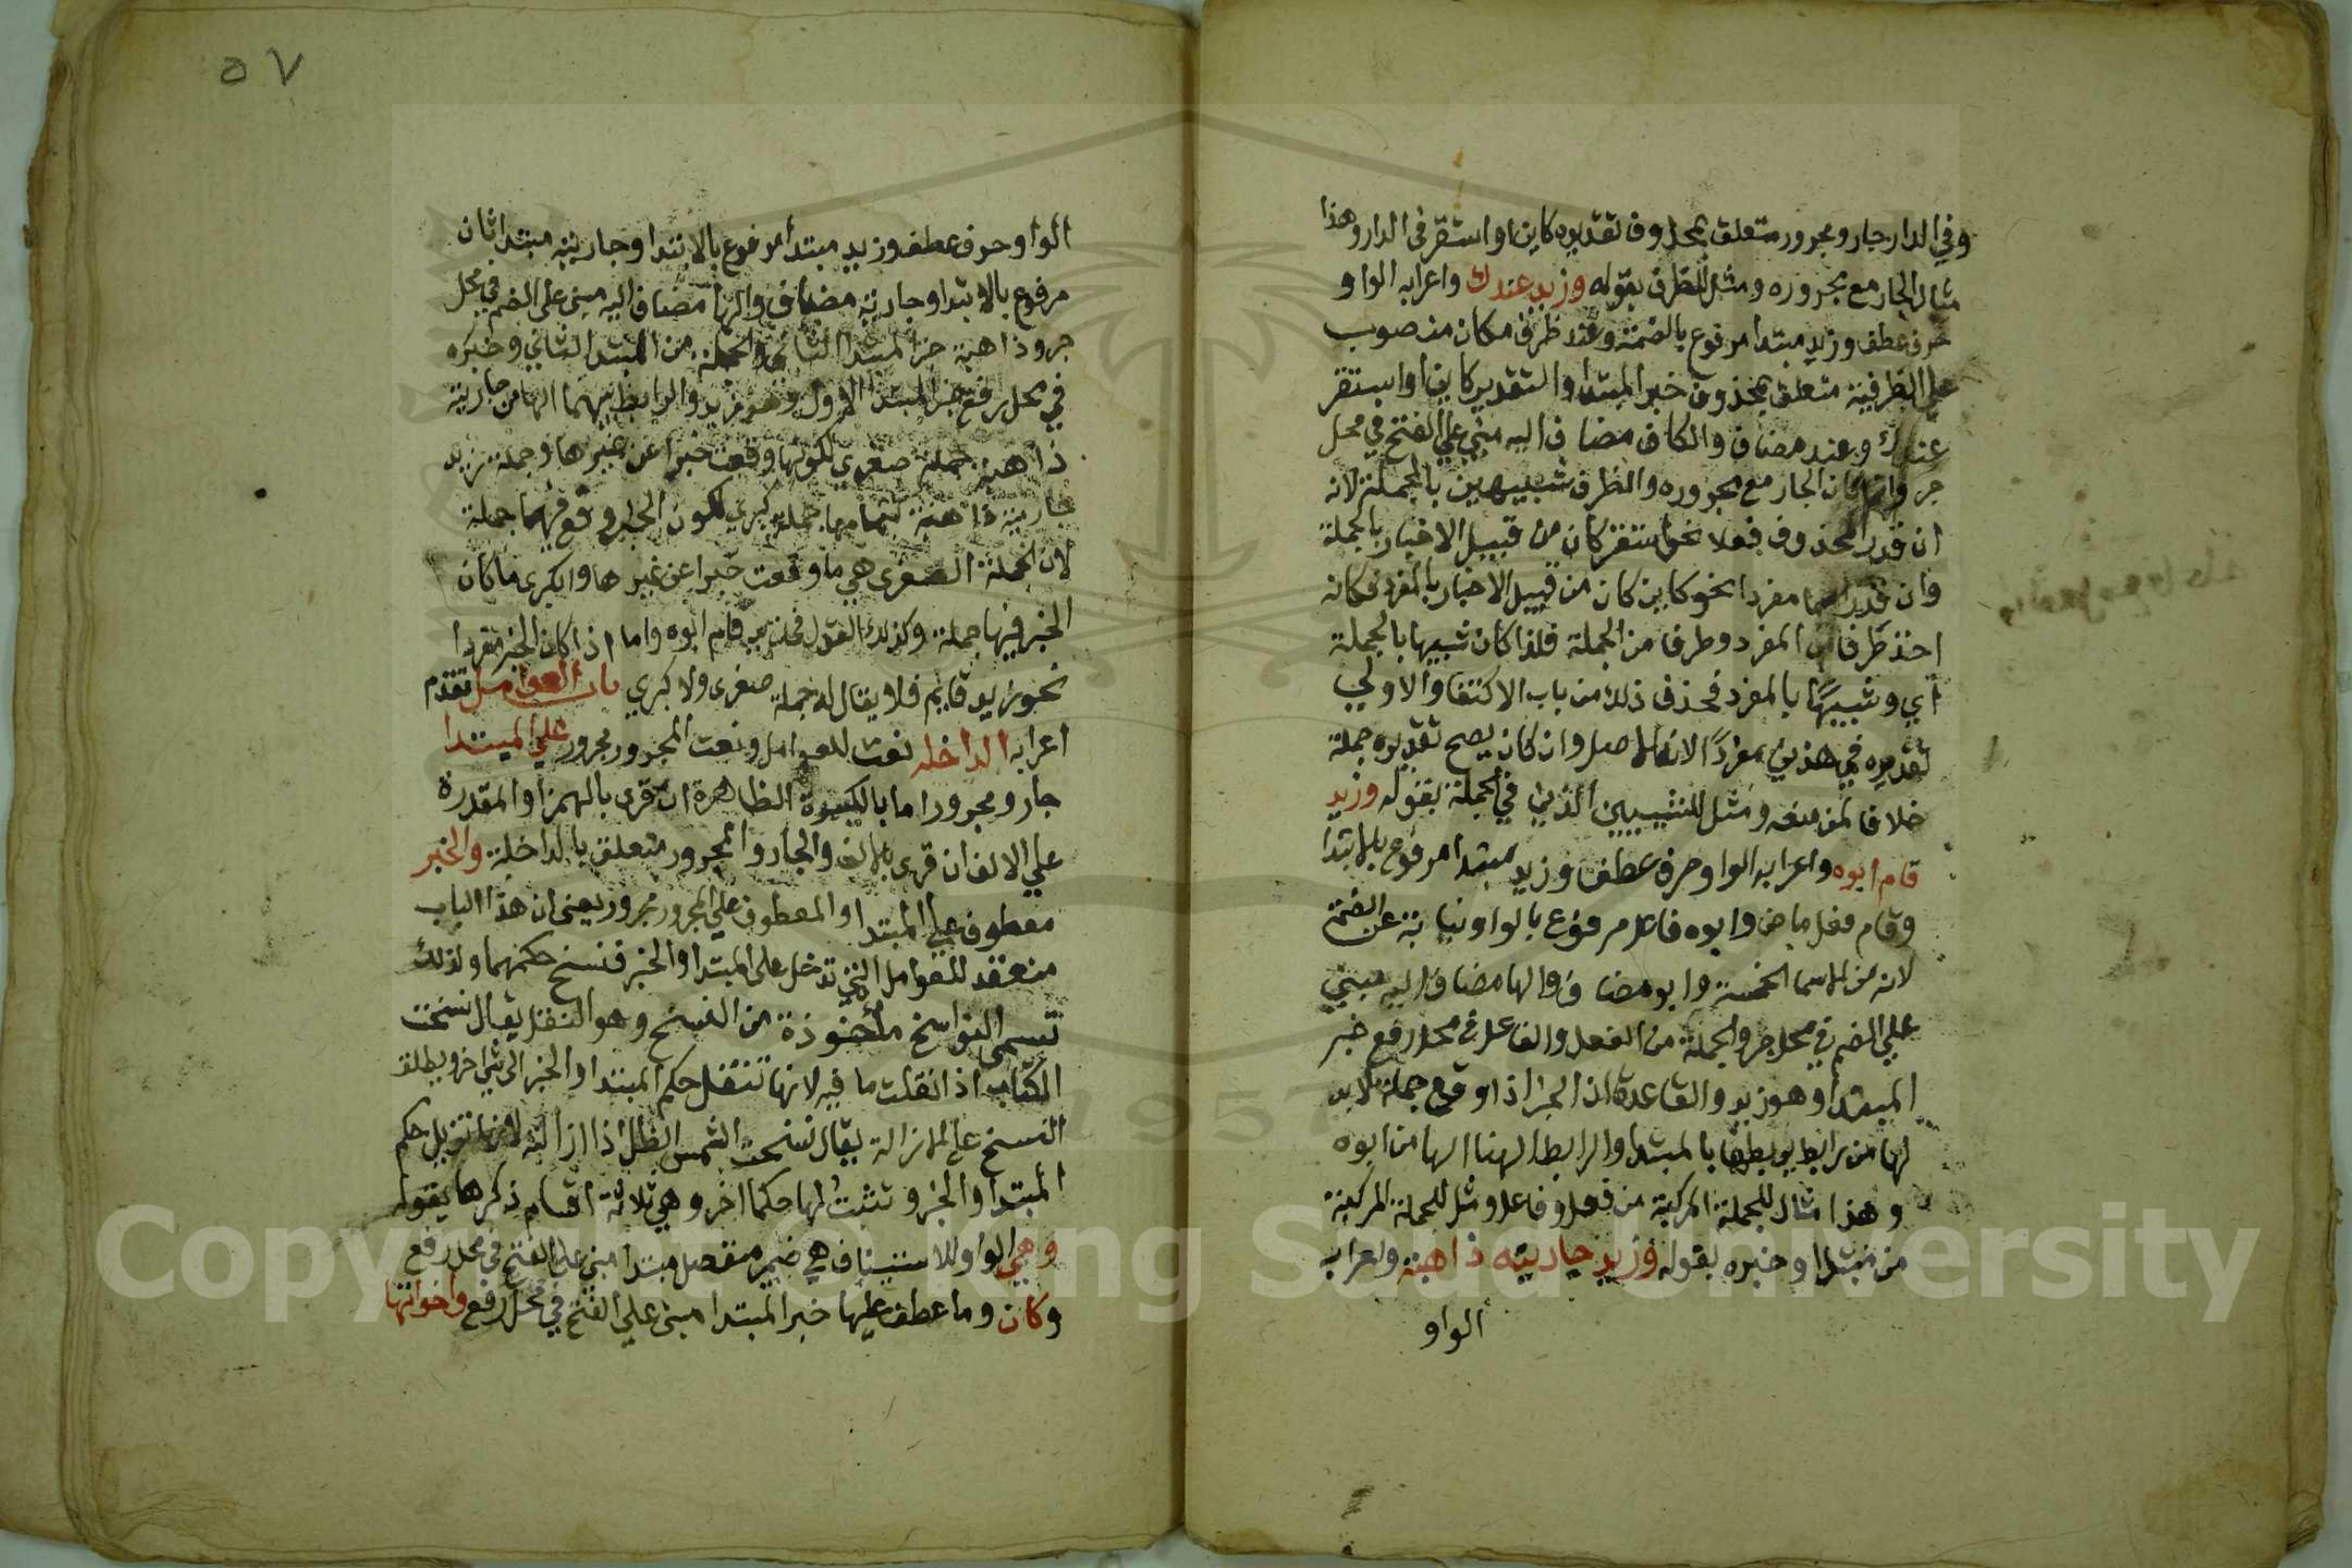 وفي الدار جار ومجرور متعلق بمحذوف تقديره كاين او استقر في الدار وهذا
مثال الجار مع مجروره ومثل للظرف بقوله وزيد عندك واعرابه الواو
حرف عطف وزيد مبتدا مرفوع بالضمة وعند ظرف مكان منصوب
على الظرفية متعلق بمحذوف خبر المبتدا والتقدير كاين او استقر
عندك وعند مضاف والكاف مضاف اليه مبني علي الفتح في محل
جر وانما كان الجار مع مجروره والظرف شبيهين بالجملة لانه
ان قدر المحذوف فعلا نحو استقر كان من قبيل الاخبار بالجملة
وان قدر اسما مفردا نحو كاين كان من قبيل الاخبار بالمفرد فكانه
اخذ طرفا من المفرد وطرفا من الجملة فلذا كان شبيها بالجملة
أي وشبيهًا بالمفرد فحذف ذلك من باب الاكتفا والاولي
تقديره في هذين مفردًا لانه الاصل وان كان يصح تقديره جملة
خلافا لمن منعه ومثل للشييين الذين في الجملة بقوله وزيد
قام ابوه واعرابه الواو حرف عطف وزيد مبتدا مرفوع بالابتدا
وقام فعل ماض وابوه فاعل مرفوع بالواو نيابة عن الضمة
لانه من الاسما الخمسة وابو مضاف والها مضاف اليه مبني
علي الضم في محل جر والجملة من الفعل والفاعل في محل رفع خبر
المبتدا وهو زيد والقاعدة ان الخبر اذا وقع جملة لابد
لها من رابط يربطها بالمبتدا والرابط لهنا الها من ابوه
وهذا مثال للجملة المركبة من فعل وفاعل ومثل للجملة المركبة
من مبتدا وخبره بقوله وزيد جاريته ذاهبة واعرابه
الواو
٥٧
الواو حرف عطف وزيد مبتدأ مرفوع بالابتدا وجاريته مبتدا ثان
مرفوع بالابتدا وجارية مضاف والها مضاف اليه مبني على الضم في محل
جر وذاهبة خبر المبتدا الثاني والجملة من المبتدا الثاني وخبره
في محل رفع خبر المبتدا الاول وهو زيد والرابط بينهما الها من جاريته
ذاهبة جملة صغري لكونها وقعت خبرا عن غيرها وجملة زيد
جاريته ذاهبة بتمامها جملة كبري لكون الخبر وقع فيها جملة
لان الجملة الصغرى هي ما وقعت خبرا عن غيرها والكبرى ما كان
الخبر فيها جملة وكذلك القول في زيد قام ابوه واما اذا كان الخبر مفردا
نحو زيد قايم فلا يقال له جملة صغرى ولا كبري باب العوامل تقدم
اعرابه الداخله نعت للعوامل ونعت المجرور مجرور علي المبتدا
جار ومجرور اما بالكسرة الظاهرة ان قرى بالهمز او المقدرة
علي الالف ان قرى بالالف والجار والمجرور متعلق بالداخلة والخبر
معطوف علي المبتدا والمعطوف علي المجرور مجرور يعني ان هذا الباب
منعقد للعوامل التي تدخل على المبتدا والخبر فتنسخ حكمهما ولذلك
تسمى النواسخ مأخوذة من النسخ وهو النقل يقال نسخت
الكتاب اذا نقلت ما فيه لانها تنقل حكم المبتدا والخبر الى شي اخر ويطلق
النسخ علي الازالة يقال نسخت الشمس الظل اذا ازالته لانها تزيل حكم
المبتدا والخبر وتثبت لها حكما اخر وهي ثلاثة اقسام ذكرها بقوله
وهي الواو للاستيناف هي ضمير منفصل مبتدا مبني علي الفتح في محل رفع
وكان وما عطف عليها خبر المبتدا مبني علي الفتح في محل رفع واخواتها
Copyright © King Saud University
1957